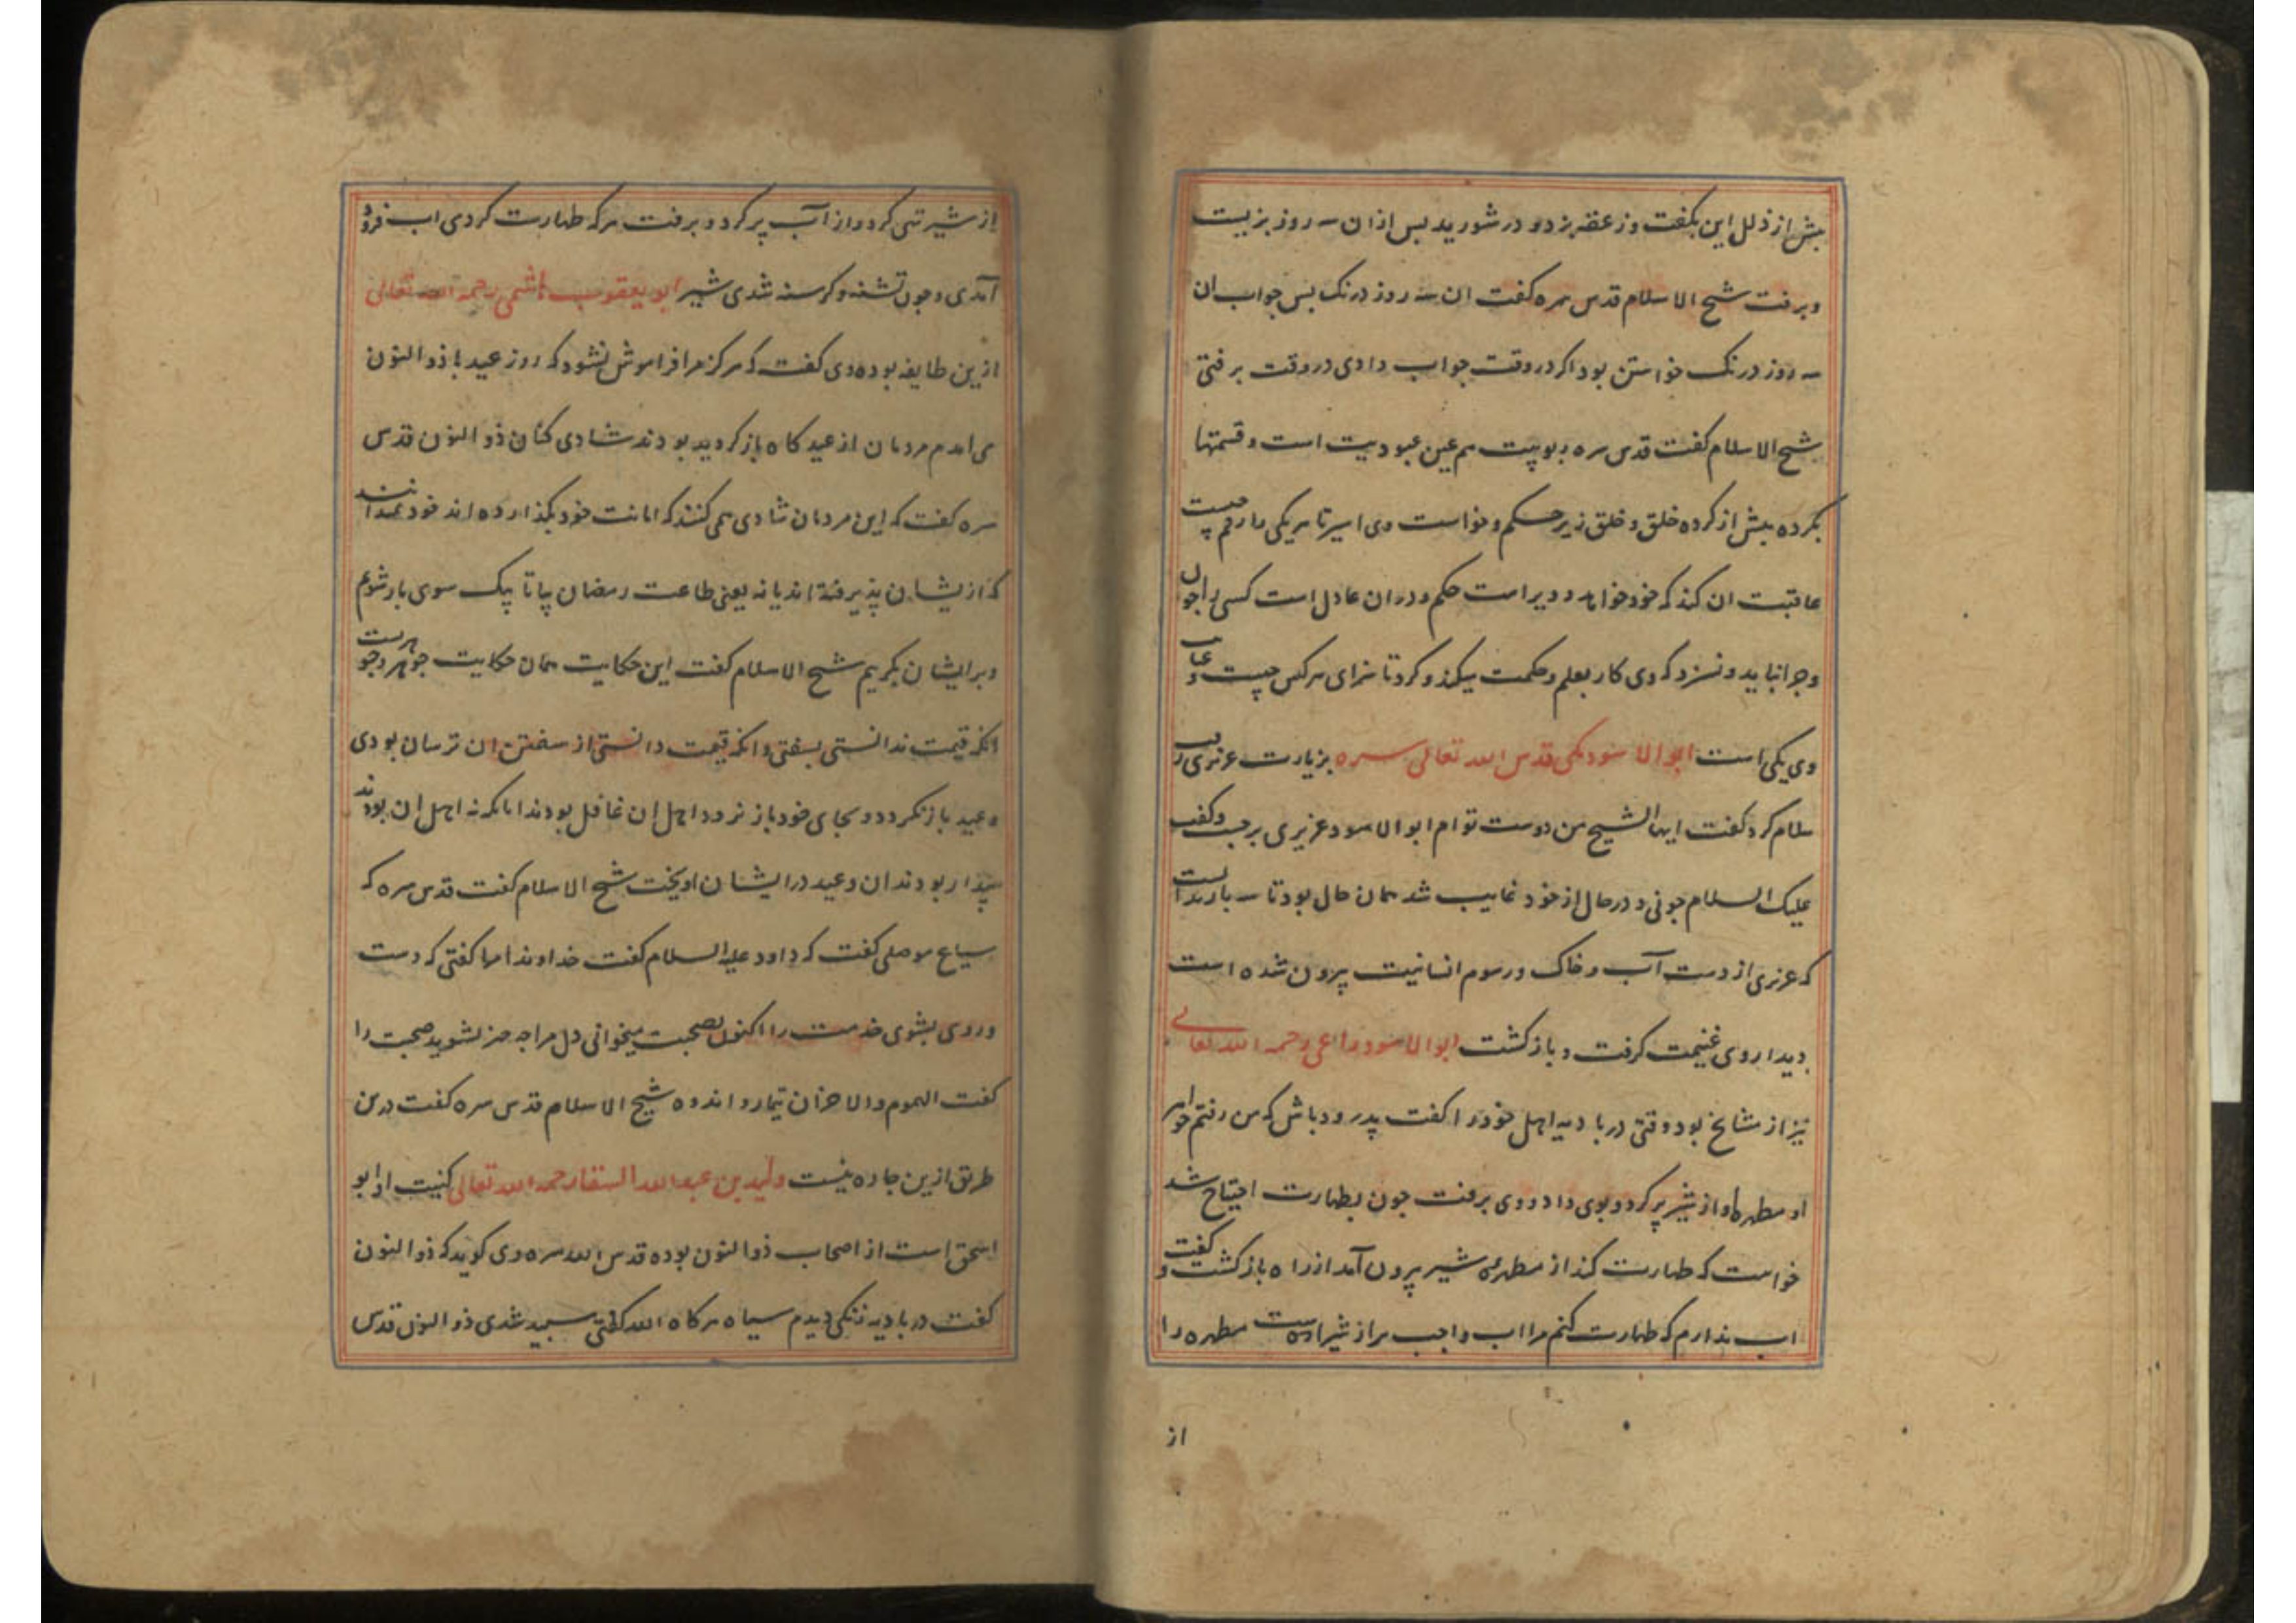 بیش از ذلل این بگفت و زعقه بزد و در شورید بس ازان سه روز بزیست
و برفت شیخ الاسلام قدس سره گفت ان سه روز درنک بس جواب ان
سه روز درنک خواستن بود اکر در وقت جواب دادی در وقت برفتی
شیخ الاسلام گفت قدس سره ربوبیت هم عین عبودیت است و قسمتها
بکرده بیش از کرده خلق و خلق زیر حکم و خواست وی اسیر تا هر یکی را رقم چیست
عاقبت ان کند که خود خواهد و ویراست حکم و دران عادل است کسی را جون
و جرا نباید و نسزد که وی کار بعلم و حکمت میکند و کرد تا سزای هر کس چیست و
وی یکی است ابوالاسود مکی قدس الله تعالی سره بزیارت عزیزی رفت
سلام کرد گفت ایها الشیخ من دوست توام ابوالاسود عزیزی برجست و گفت
علیک السلام جونی و در حال از خود غایب شد همان حال بود تا سه بار بدانست
که عزیزی از دست آب و خاک و رسوم انسانیت بیرون شده است
دیدار وی غنیمت کرفت و بازکشت ابوالاسود راعی رحمه الله تعالی
نیز از مشایخ بود وقتی در بادیه اهل خود را گفت پدرود باش که من رفتم خواهر
او مطهره او از شیر پر کرد و بوی داد و وی برفت جون بطهارت احتیاج شد
خواست که طهارت کند از مطهره شیر بیرون آمد از راه بازکشت و گفت
اب ندارم که طهارت کنم مرا اب واجب تر از شیر است مطهره را
از
از شیر تهی کرد و از آب پر کرد و برفت هرکه طهارت کردی اب فرود
آمدی و جون تشنه و کرسنه شدی شیر ابویعقوب هاشمی رحمه الله تعالی
ازین طایفه بوده وی گفت که هرکز مرا فراموش نشود که روز عید با ذوالنون
می امدم مردمان از عیدکاه بازکردید بودند شادی کنان ذوالنون قدس
سره گفت که این مردمان شادی همی کنند که امانت خود بکذارده اند خود نمیدانند
که ازیشان پذیرفته اند یا نه یعنی طاعت رمضان بیا تا بیک سوی باز شویم
و بر ایشان بکرییم شیخ الاسلام گفت این حکایت همان حکایت جوهر و جوهریست
انکه قیمت ندانستی بسفتی و انکه قیمت دانستی از سفتن ان ترسان بودی
وعید بازنکردد و بجای خود باز نرود اهل ان غافل بودند اما انکه نه اهل ان بودند
بیدار بودند ان وعید در ایشان اویخت شیخ الاسلام گفت قدس سره که
سباع موصلی گفت که داود علیه السلام گفت خداوندا مرا گفتی که دست
و روی بشوی خدمت را اکنون بصحبت میخوانی دل مرا جه جیز بشوید صحبت را
گفت الهموم والاحزان تیمار و اندوه شیخ الاسلام قدس سره گفت درین
طریق ازین جاره نیست ولید بن عبدالله السقا رحمه الله تعالی کنیت او ابو
اسحق است از اصحاب ذوالنون بوده قدس الله سره وی گوید که ذوالنون
گفت در بادیه زنکی دیدم سیاه هرکاه الله گفتی سپید شدی ذوالنون قدس